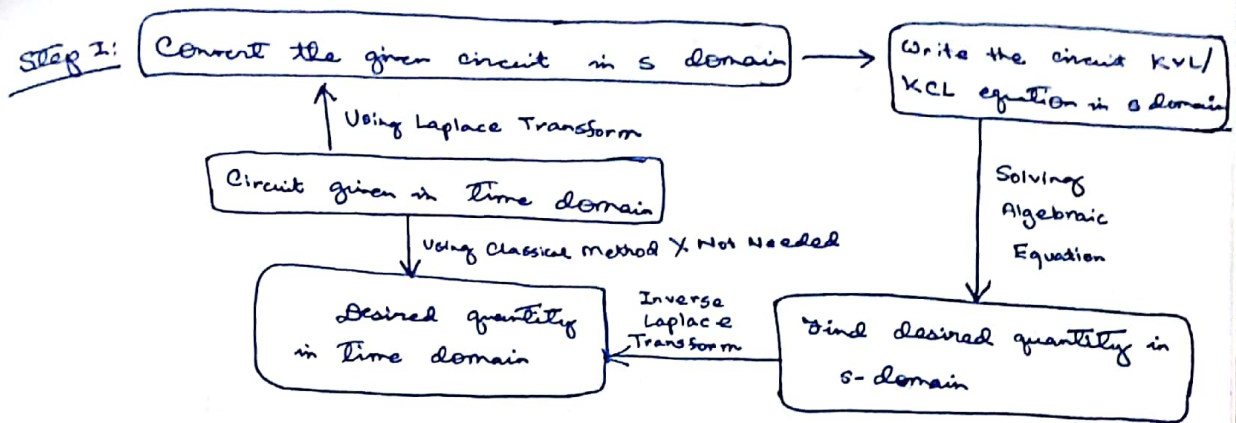 Step I:
Convert the given circuit in s domain
Write the circuit KVL/
KCL equation in s domain
Using Laplace Transform
Circuit given in Time domain
Solving
Algebraic
Equation
Using Classical Method X Not Needed
Desired quantity
in Time domain
Inverse
Laplace
Transform
Find desired quantity in
s-domain